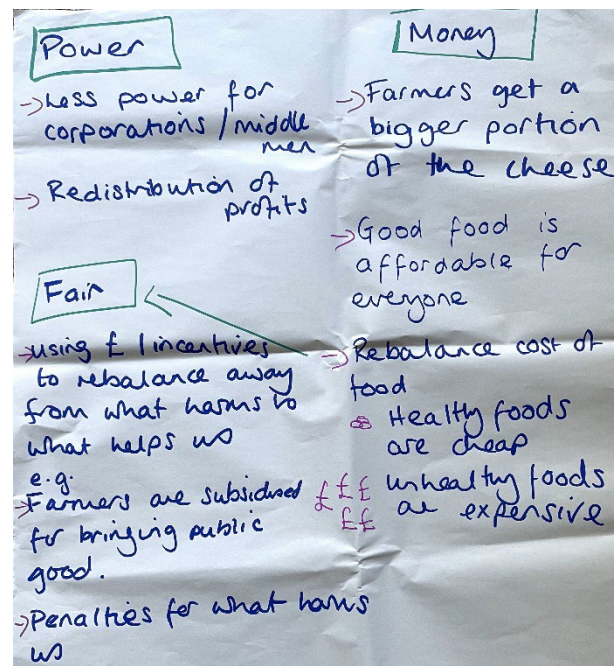 Power
→Less power for
corporations / middle
men
→Redistribution of
profits
Fair
→using £ / incentives
to rebalance away
from what harms to
what helps us
e.g.
→Farmers are subsidised
for bringing public
good.
→Penalties for what harms
us
Money
→Farmers get a
bigger portion
of the cheese
→Good food is
affordable for
everyone
→Rebalance cost of
food
Healthy foods
are cheap
£££ unhealthy foods
££ are expensive